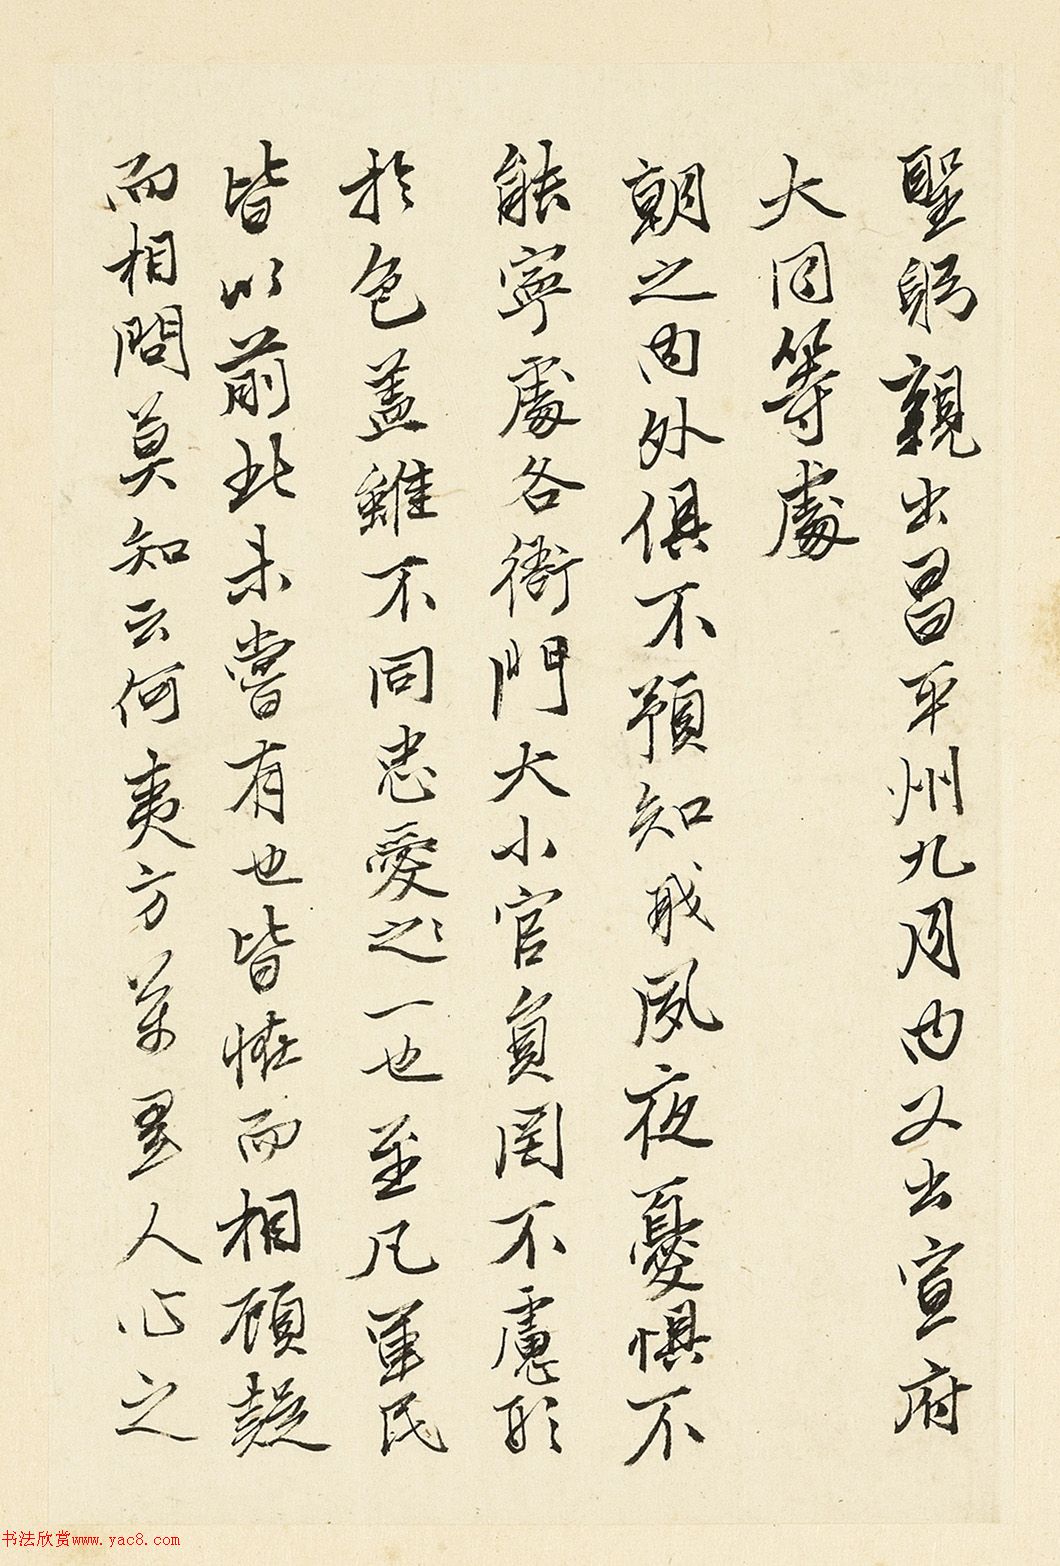 聖躬親出昌平州九月內又出宣府
大同等處
朝之內外俱不預知戒夙夜憂懼不
能寧處各衙門大小官員罔不慮形
於色蓋雖不同忠愛之之一也至凡軍民
皆以前此未嘗有也皆怪而相顧疑
而相問莫知云何夷方萬里人心之
书法欣赏www.yac8.com